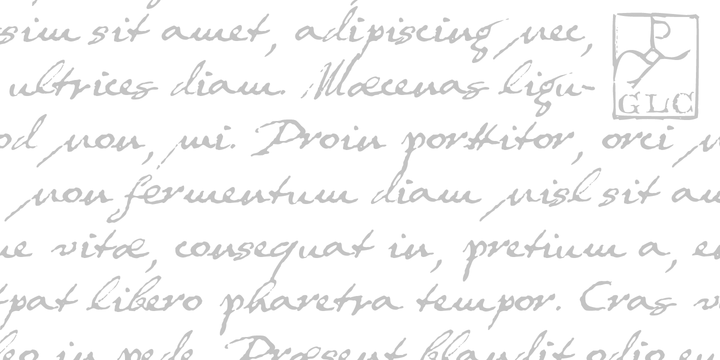 sim sit amet, adipiscing nec,
ultrices diam. Mæcenas ligu-
GLC
od non, mi. Proin porttitor, orci
non fermentum diam nisl sit
vitæ, consequat in, pretium a,
tpat libero pharetra tempor. Cras
leo in pede. Præsent blandit odio eu